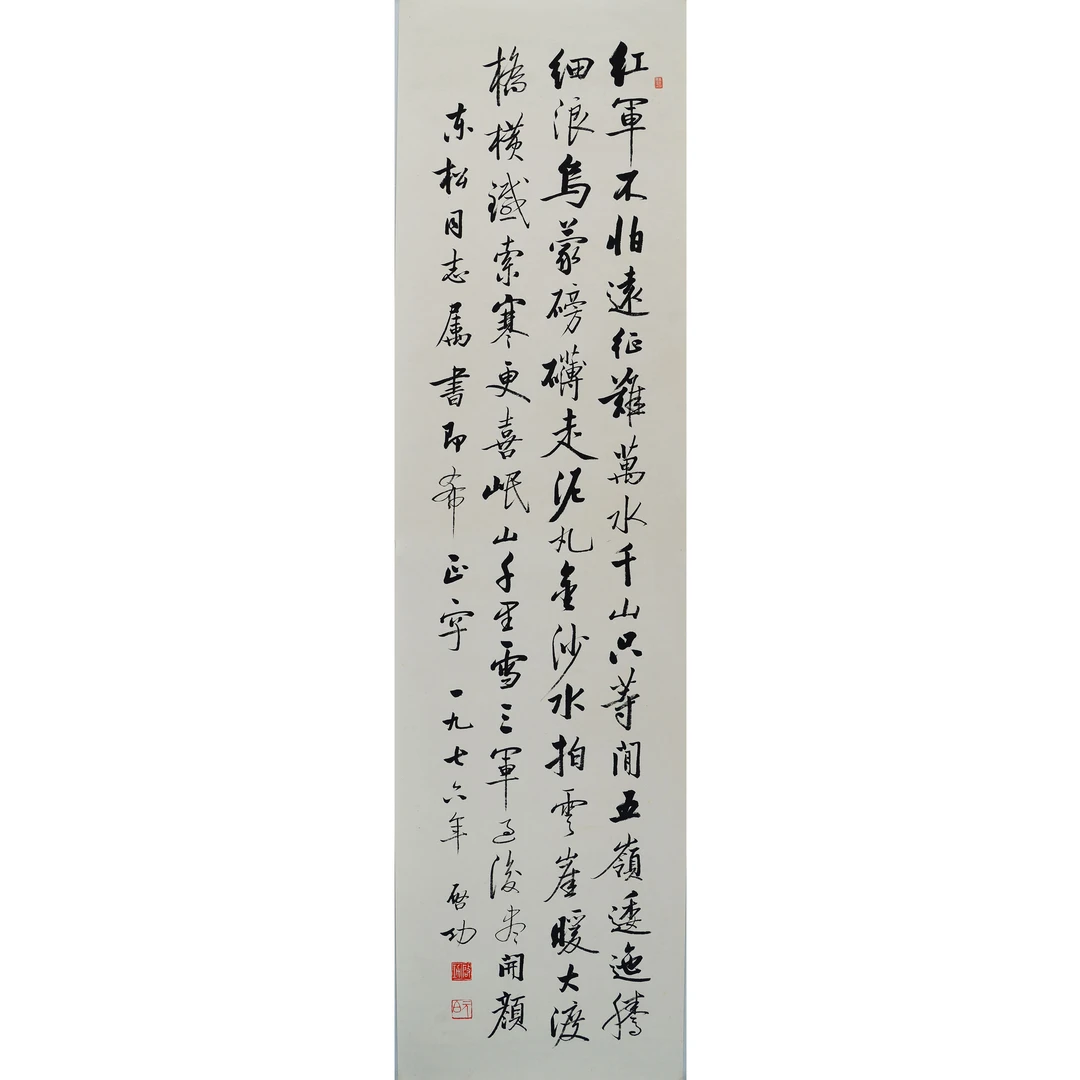 紅軍不怕遠征難萬水千山只等閒五嶺逶迤騰
細浪烏蒙磅礴走泥丸金沙水拍雲崖暖大渡
橋橫鐵索寒更喜岷山千里雪三軍過後盡開顏
东松同志属書即希正字 一九七六年 啓功
啓功
元白